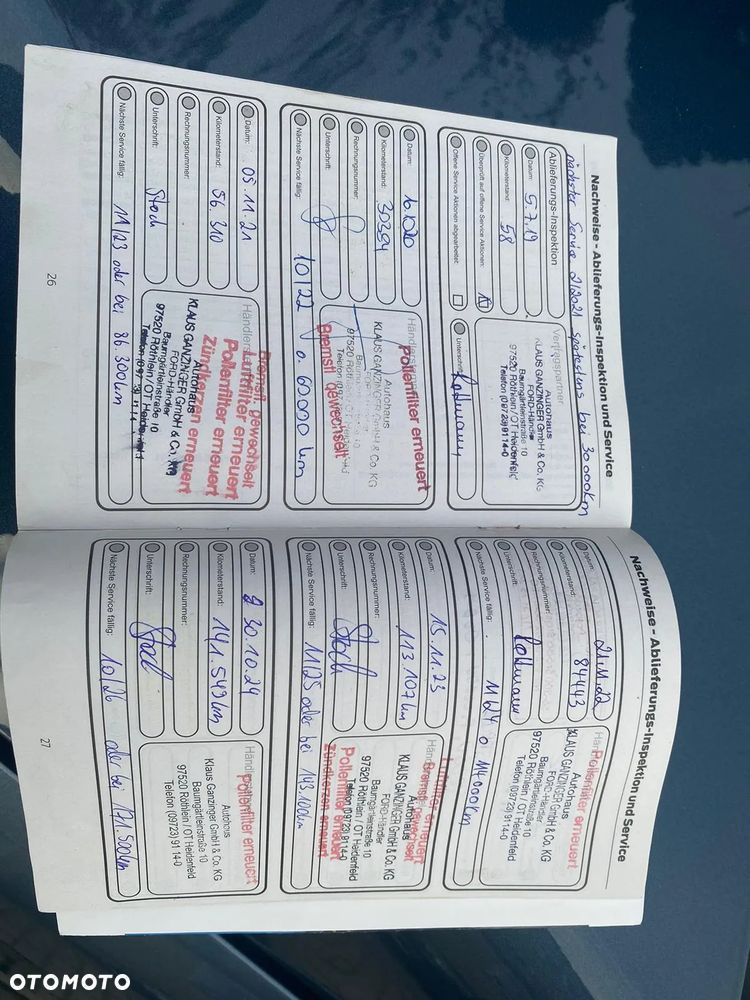 Nachweise - Ablieferungs-Inspektion und Service
nächster Service 7/2021 spätestens bei 30000km
Ablieferungs-Inspektion
Datum: 5.7.19
Kilometerstand: 58
Überprüft auf offene Service Aktionen:
Offene Service Aktionen abgearbeitet:
Vertragspartner
Autohaus
KLAUS GANZINGER GmbH & Co. KG
FORD-Händler
Baumgärtleinstraße 10
97520 Röthlein / OT Heidenfeld
Telefon (09723) 9114-0
Unterschrift:
Datum:
Kilometerstand: 30384
Rechnungsnummer:
Unterschrift:
Nächste Service fällig: 10/22 o. 60000 km
Pollenfilter erneuert
Autohaus
KLAUS GANZINGER GmbH & Co. KG
97520
Bremsfl gewechselt
Datum: 05.11.21
Kilometerstand: 56.310
Rechnungsnummer:
Unterschrift: Stock
Nächste Service fällig: 11/23 oder bei 86300km
Bremsfl gewechselt
Luftfilter erneuert
Pollenfilter erneuert
Zündkerzen erneuert
Autohaus
KLAUS GANZINGER GmbH & Co. KG
FORD-Händler
Baumgärtleinstraße 10
97520 Röthlein / OT Heidenfeld
26
Nachweise - Ablieferungs-Inspektion und Service
Datum: 21.11.22
Kilometerstand: 84443
Rechnungsnummer:
Unterschrift:
Nächste Service fällig: 11/24 o 114000km
Pollenfilter erneuert
Autohaus
KLAUS GANZINGER GmbH & Co. KG
FORD-Händler
Baumgärtleinstraße 10
97520 Röthlein / OT Heidenfeld
Telefon (09723) 9114-0
Datum: 15.11.23
Kilometerstand: 113.107km
Rechnungsnummer:
Unterschrift: Stock
Nächste Service fällig: 11/25 oder bei 143.100km
Luftfilter erneuert
Bremsfl gewechselt
Autohaus
KLAUS GANZINGER GmbH & Co. KG
FORD-Händler
Baumgärtleinstraße 10
97520 Röthlein / OT Heidenfeld
Telefon (09723) 9114-0
Pollenfilter erneuert
Zündkerzen erneuert
Datum: 30.10.24
Kilometerstand: 141.549km
Rechnungsnummer:
Unterschrift: Stock
Nächste Service fällig: 10/26 oder bei 171.500km
Pollenfilter erneuert
Autohaus
Klaus Ganzinger GmbH & Co. KG
Baumgärtleinstraße 10
97520 Röthlein / OT Heidenfeld
Telefon (09723) 91 14-0
27
OTOMOTO